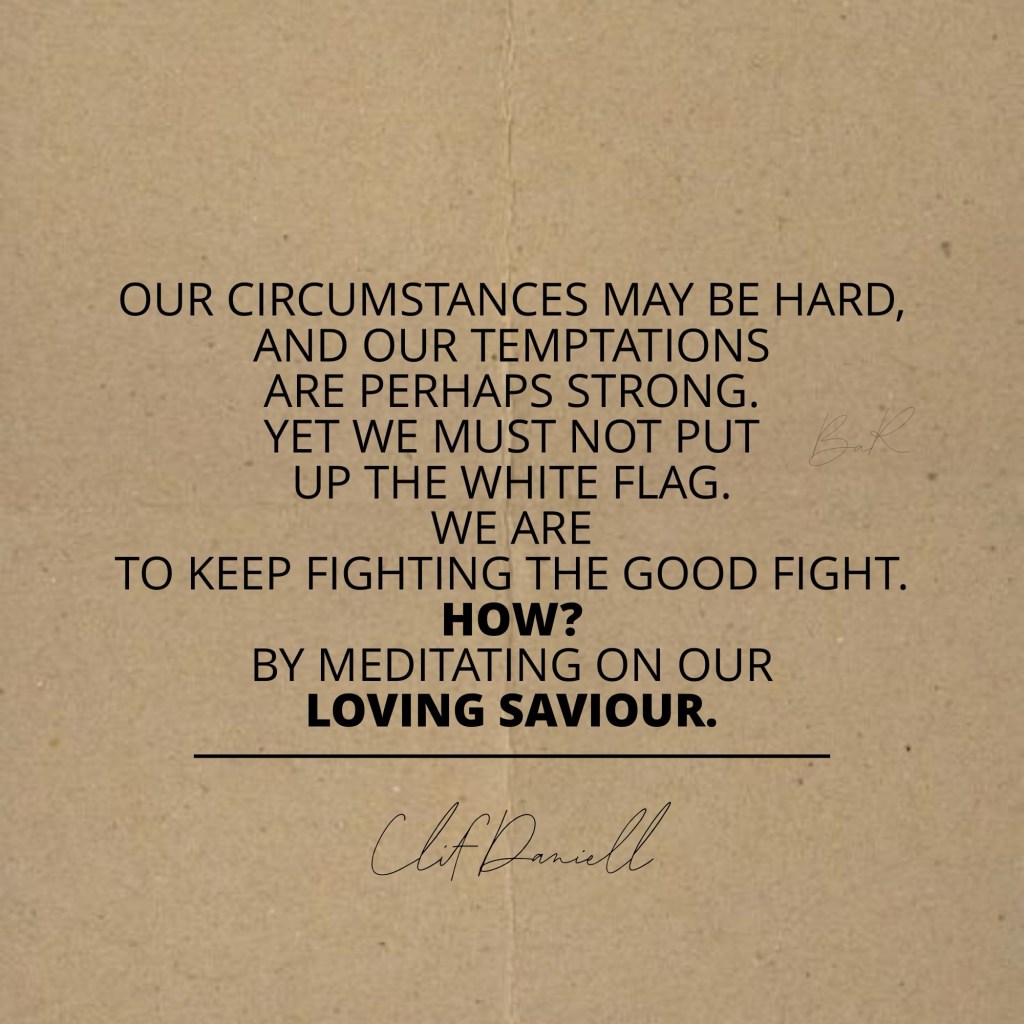 OUR CIRCUMSTANCES MAY BE HARD,
AND OUR TEMPTATIONS
ARE PERHAPS STRONG.
YET WE MUST NOT PUT
BaR
UP THE WHITE FLAG.
WE ARE
TO KEEP FIGHTING THE GOOD FIGHT.
HOW?
BY MEDITATING ON OUR
LOVING SAVIOUR.
Clif Daniell